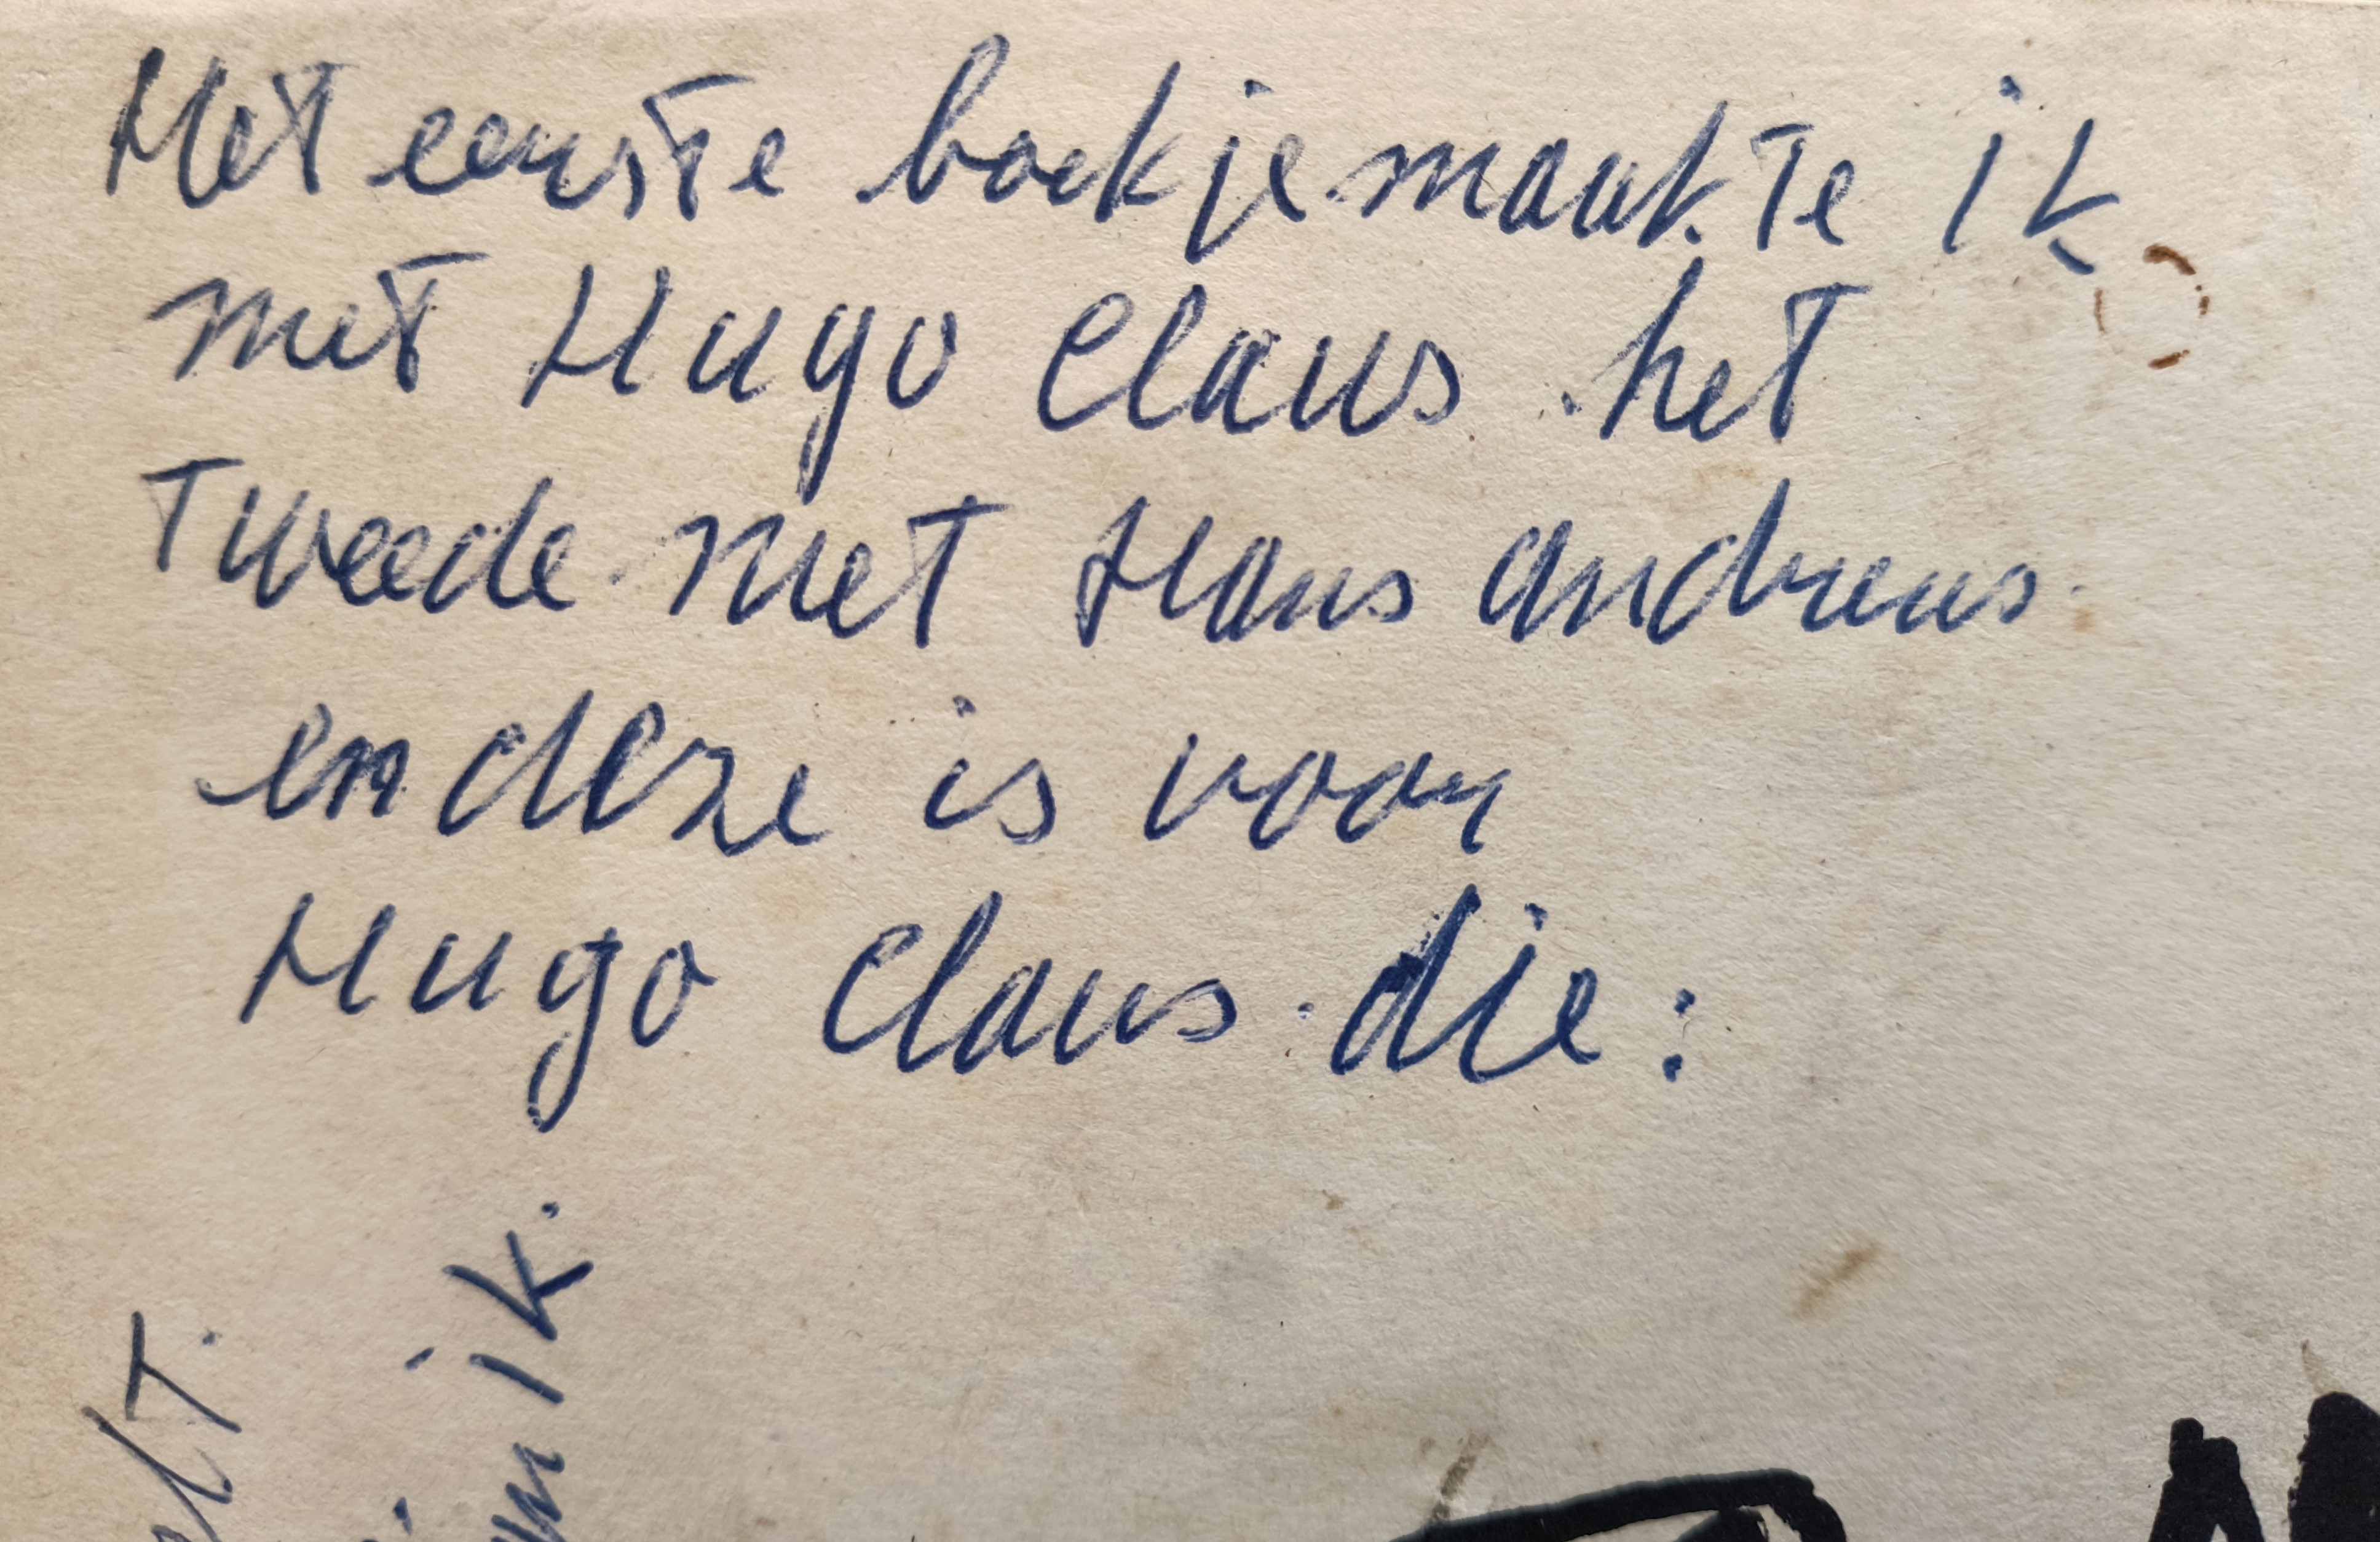 Het eerste boekje maakte ik
met Hugo Claus het
tweede met Hans andreus
en deze is voor
Hugo Claus die:
ik.